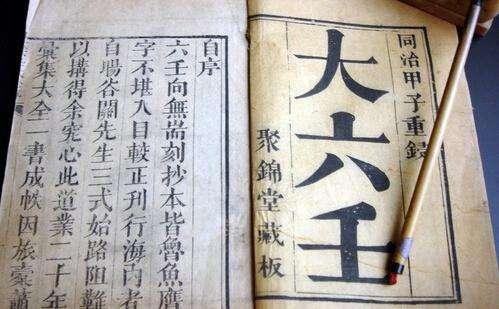 同治甲子重鐫
大六壬
聚錦堂藏板
自序
六壬向無耑刻抄本皆魯魚
字不堪入目較正刊行海內者
自場谷關先生三式始路阻難
以購得余究心此道業二十年
彙集大全一書成帙因旅橐蕭